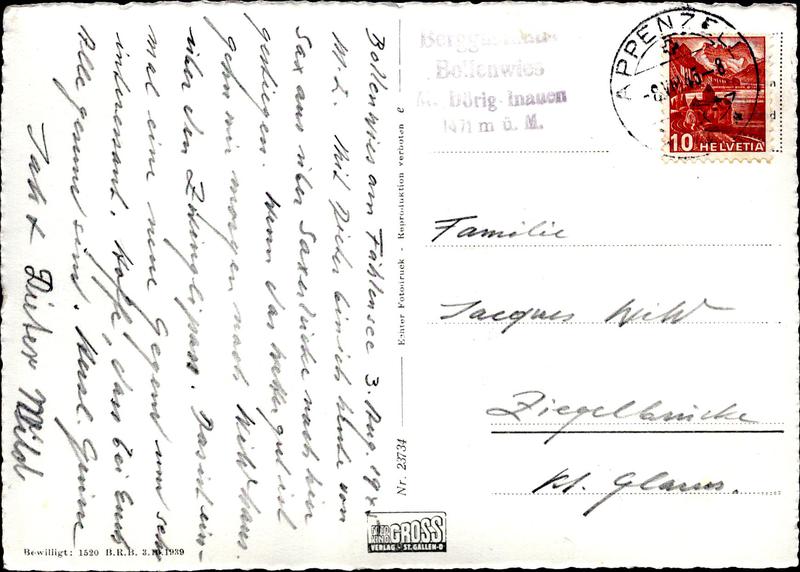 Bollenwies am Fählensee 3. Aug. 19
M. L. Mit Dieter bin ich heute von
Sax aus über Saxerlücke nach hier
gestiegen. Wenn das Wetter gut ist
gehen wir morgen nach Wildhaus
über den Zwinglipass. Das ist ein-
mal eine neue Gegend und sehr
interessant. Hoffe, dass bei Euch
Alle gesund sind. Herzl. Grüsse
+ Dieter Wild
Bewilligt: 1520 B.R.B. 3.10.1939
Nr. 23734 Echter Fotodruck - Reproduktion verboten
FOTO GROSS
VERLAG - ST. GALLEN-O
Berggasthaus
Bollenwies
Dörig-Inauen
1471 m ü. M.
APPENZELL
10 HELVETIA
Familie
Jacques Wild
Ziegelbrücke
Kt. Glarus.